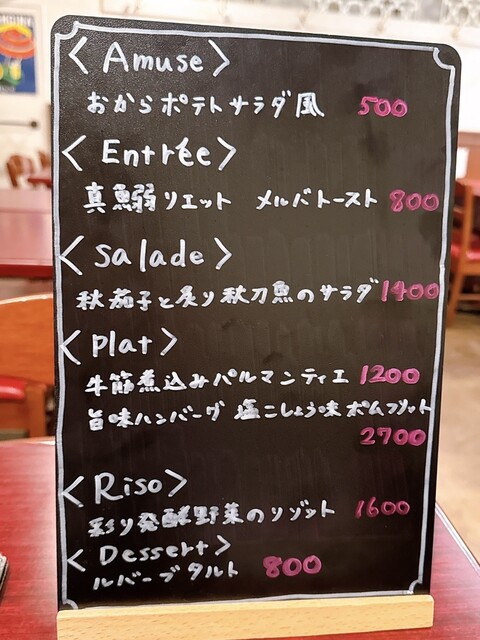 < Amuse >
おからポテトサラダ風 500
< Entrée >
真鰯リエット メルバトースト 800
< Salade >
秋茄子と炙り秋刀魚のサラダ 1400
< Plat >
牛筋煮込みパルマンティエ 1200
旨味ハンバーグ 塩こしょう味 ポムフリット
2700
< Riso >
彩り発酵野菜のリゾット 1600
< Dessert >
ルバーブタルト 800